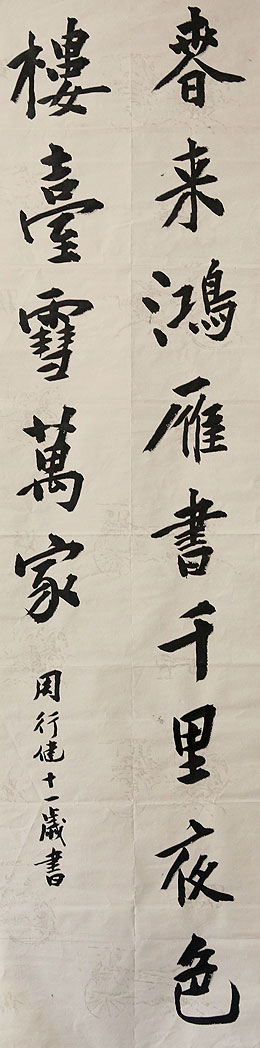 春来鸿雁書千里夜色
樓臺雪萬家
周行健十一歲書